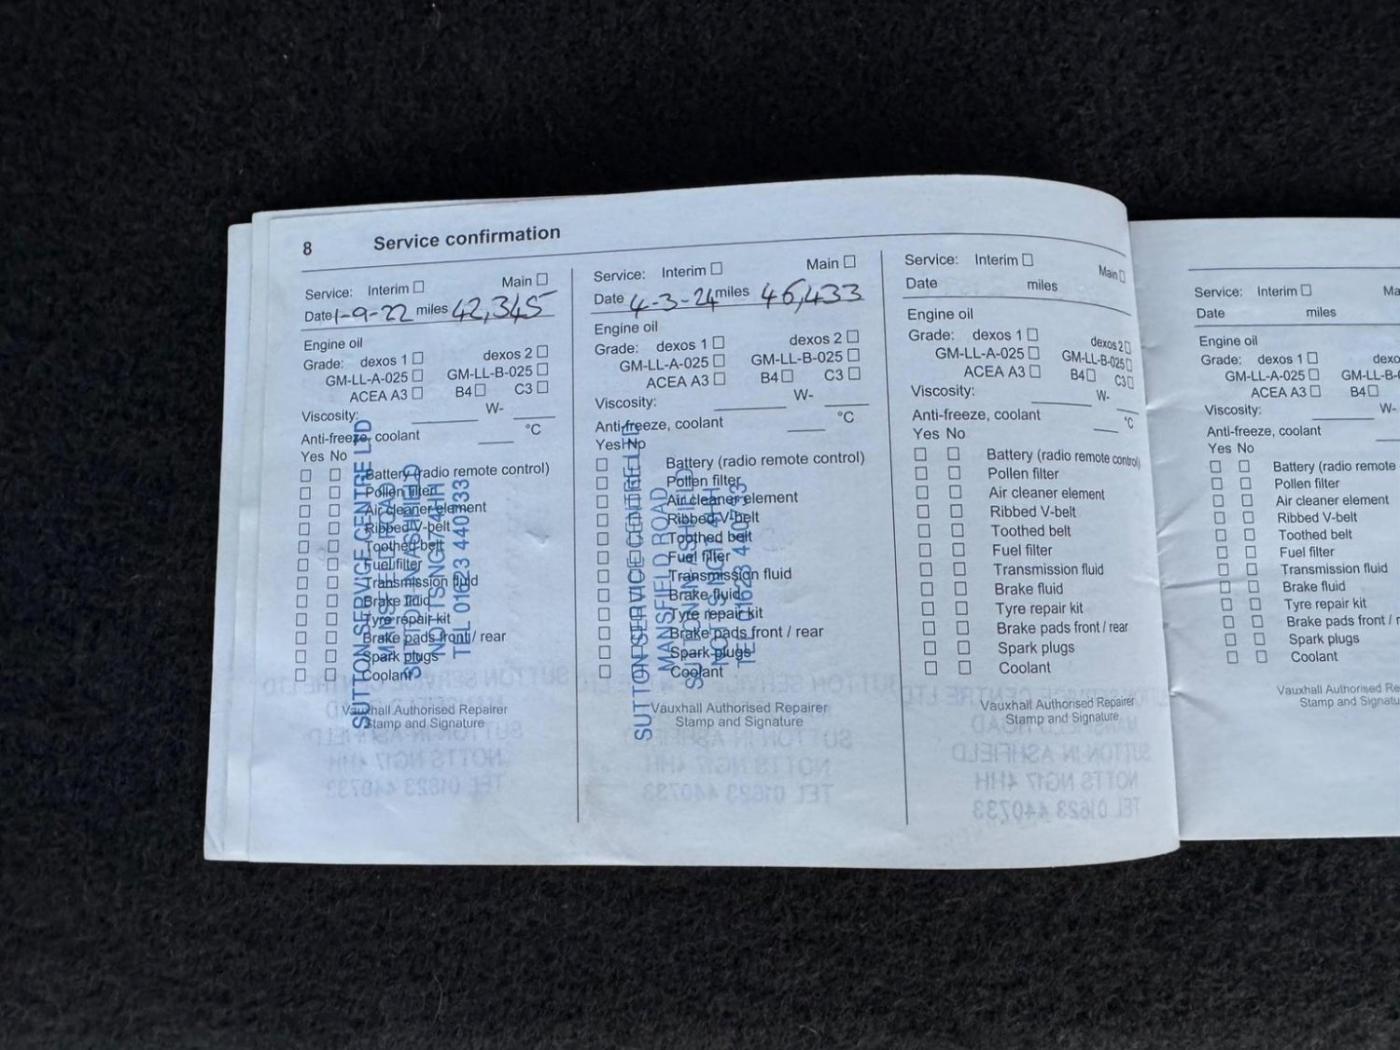 8 Service confirmation
Service: Interim Main
Date 1-9-22 miles 42,345
Engine oil
Grade: dexos 1 dexos 2
GM-LL-A-025 GM-LL-B-025
ACEA A3 B4 C3
Viscosity: W-
Anti-freeze, coolant °C
Yes No
Battery (radio remote control)
Pollen filter
Air cleaner element
Ribbed V-belt
Toothed belt
Fuel filter
Transmission fluid
Brake fluid
Tyre repair kit
Brake pads front / rear
Spark plugs
Coolant
Vauxhall Authorised Repairer
Stamp and Signature
SUTTON SERVICE CENTRE LTD
MANSFIELD ROAD
SUTTON IN ASHFIELD
NOTTS NG17 4HH
TEL 01623 440733
Service: Interim Main
Date 4-3-24 miles 46,433
Engine oil
Grade: dexos 1 dexos 2
GM-LL-A-025 GM-LL-B-025
ACEA A3 B4 C3
Viscosity: W-
Anti-freeze, coolant °C
Yes No
Battery (radio remote control)
Pollen filter
Air cleaner element
Ribbed V-belt
Toothed belt
Fuel filter
Transmission fluid
Brake fluid
Tyre repair kit
Brake pads front / rear
Spark plugs
Coolant
Vauxhall Authorised Repairer
Stamp and Signature
SUTTON SERVICE CENTRE LTD
MANSFIELD ROAD
SUTTON IN ASHFIELD
NOTTS NG17 4HH
TEL 01623 440733
Service: Interim Main
Date miles
Engine oil
Grade: dexos 1 dexos 2
GM-LL-A-025 GM-LL-B-025
ACEA A3 B4 C3
Viscosity: W-
Anti-freeze, coolant °C
Yes No
Battery (radio remote control)
Pollen filter
Air cleaner element
Ribbed V-belt
Toothed belt
Fuel filter
Transmission fluid
Brake fluid
Tyre repair kit
Brake pads front / rear
Spark plugs
Coolant
Vauxhall Authorised Repairer
Stamp and Signature
Service: Interim Ma
Date miles
Engine oil
Grade: dexos 1 dexo
GM-LL-A-025 GM-LL-B-0
ACEA A3 B4
Viscosity: W-
Anti-freeze, coolant
Yes No
Battery (radio remote
Pollen filter
Air cleaner element
Ribbed V-belt
Toothed belt
Fuel filter
Transmission fluid
Brake fluid
Tyre repair kit
Brake pads front / r
Spark plugs
Coolant
Vauxhall Authorised Re
Stamp and Signatu